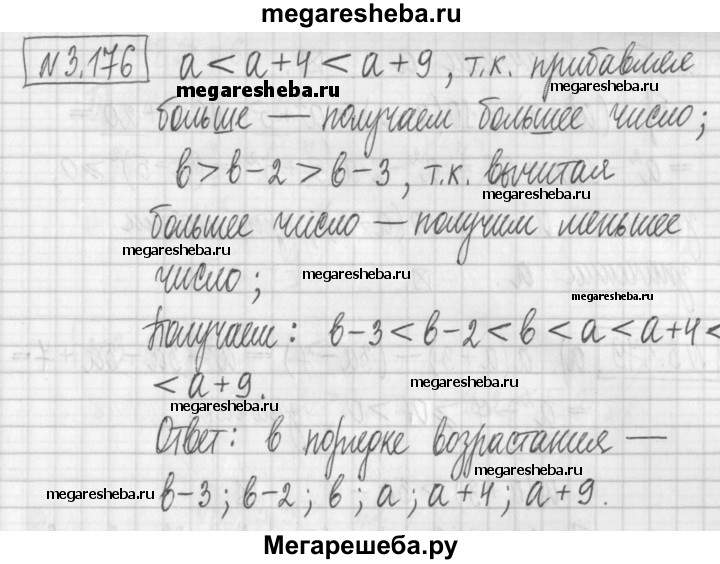 megaresheba.ru
N3.176 a < a+4 < a+9, т.к. прибавляя
megaresheba.ru megaresheba.ru
больше — получаем большее число;
в > в-2 > в-3, т.к. вычитая
megaresheba.ru
большее число — получим меньшее
megaresheba.ru megaresheba.ru
число;
megaresheba.ru
Получаем: в-3 < в-2 < в < a < a+4 <
< a+9.
megaresheba.ru
megaresheba.ru
Ответ: в порядке возрастания —
megaresheba.ru
megaresheba.ru в-3; в-2; в; a; a+4; a+9.
Мегарешеба.ру